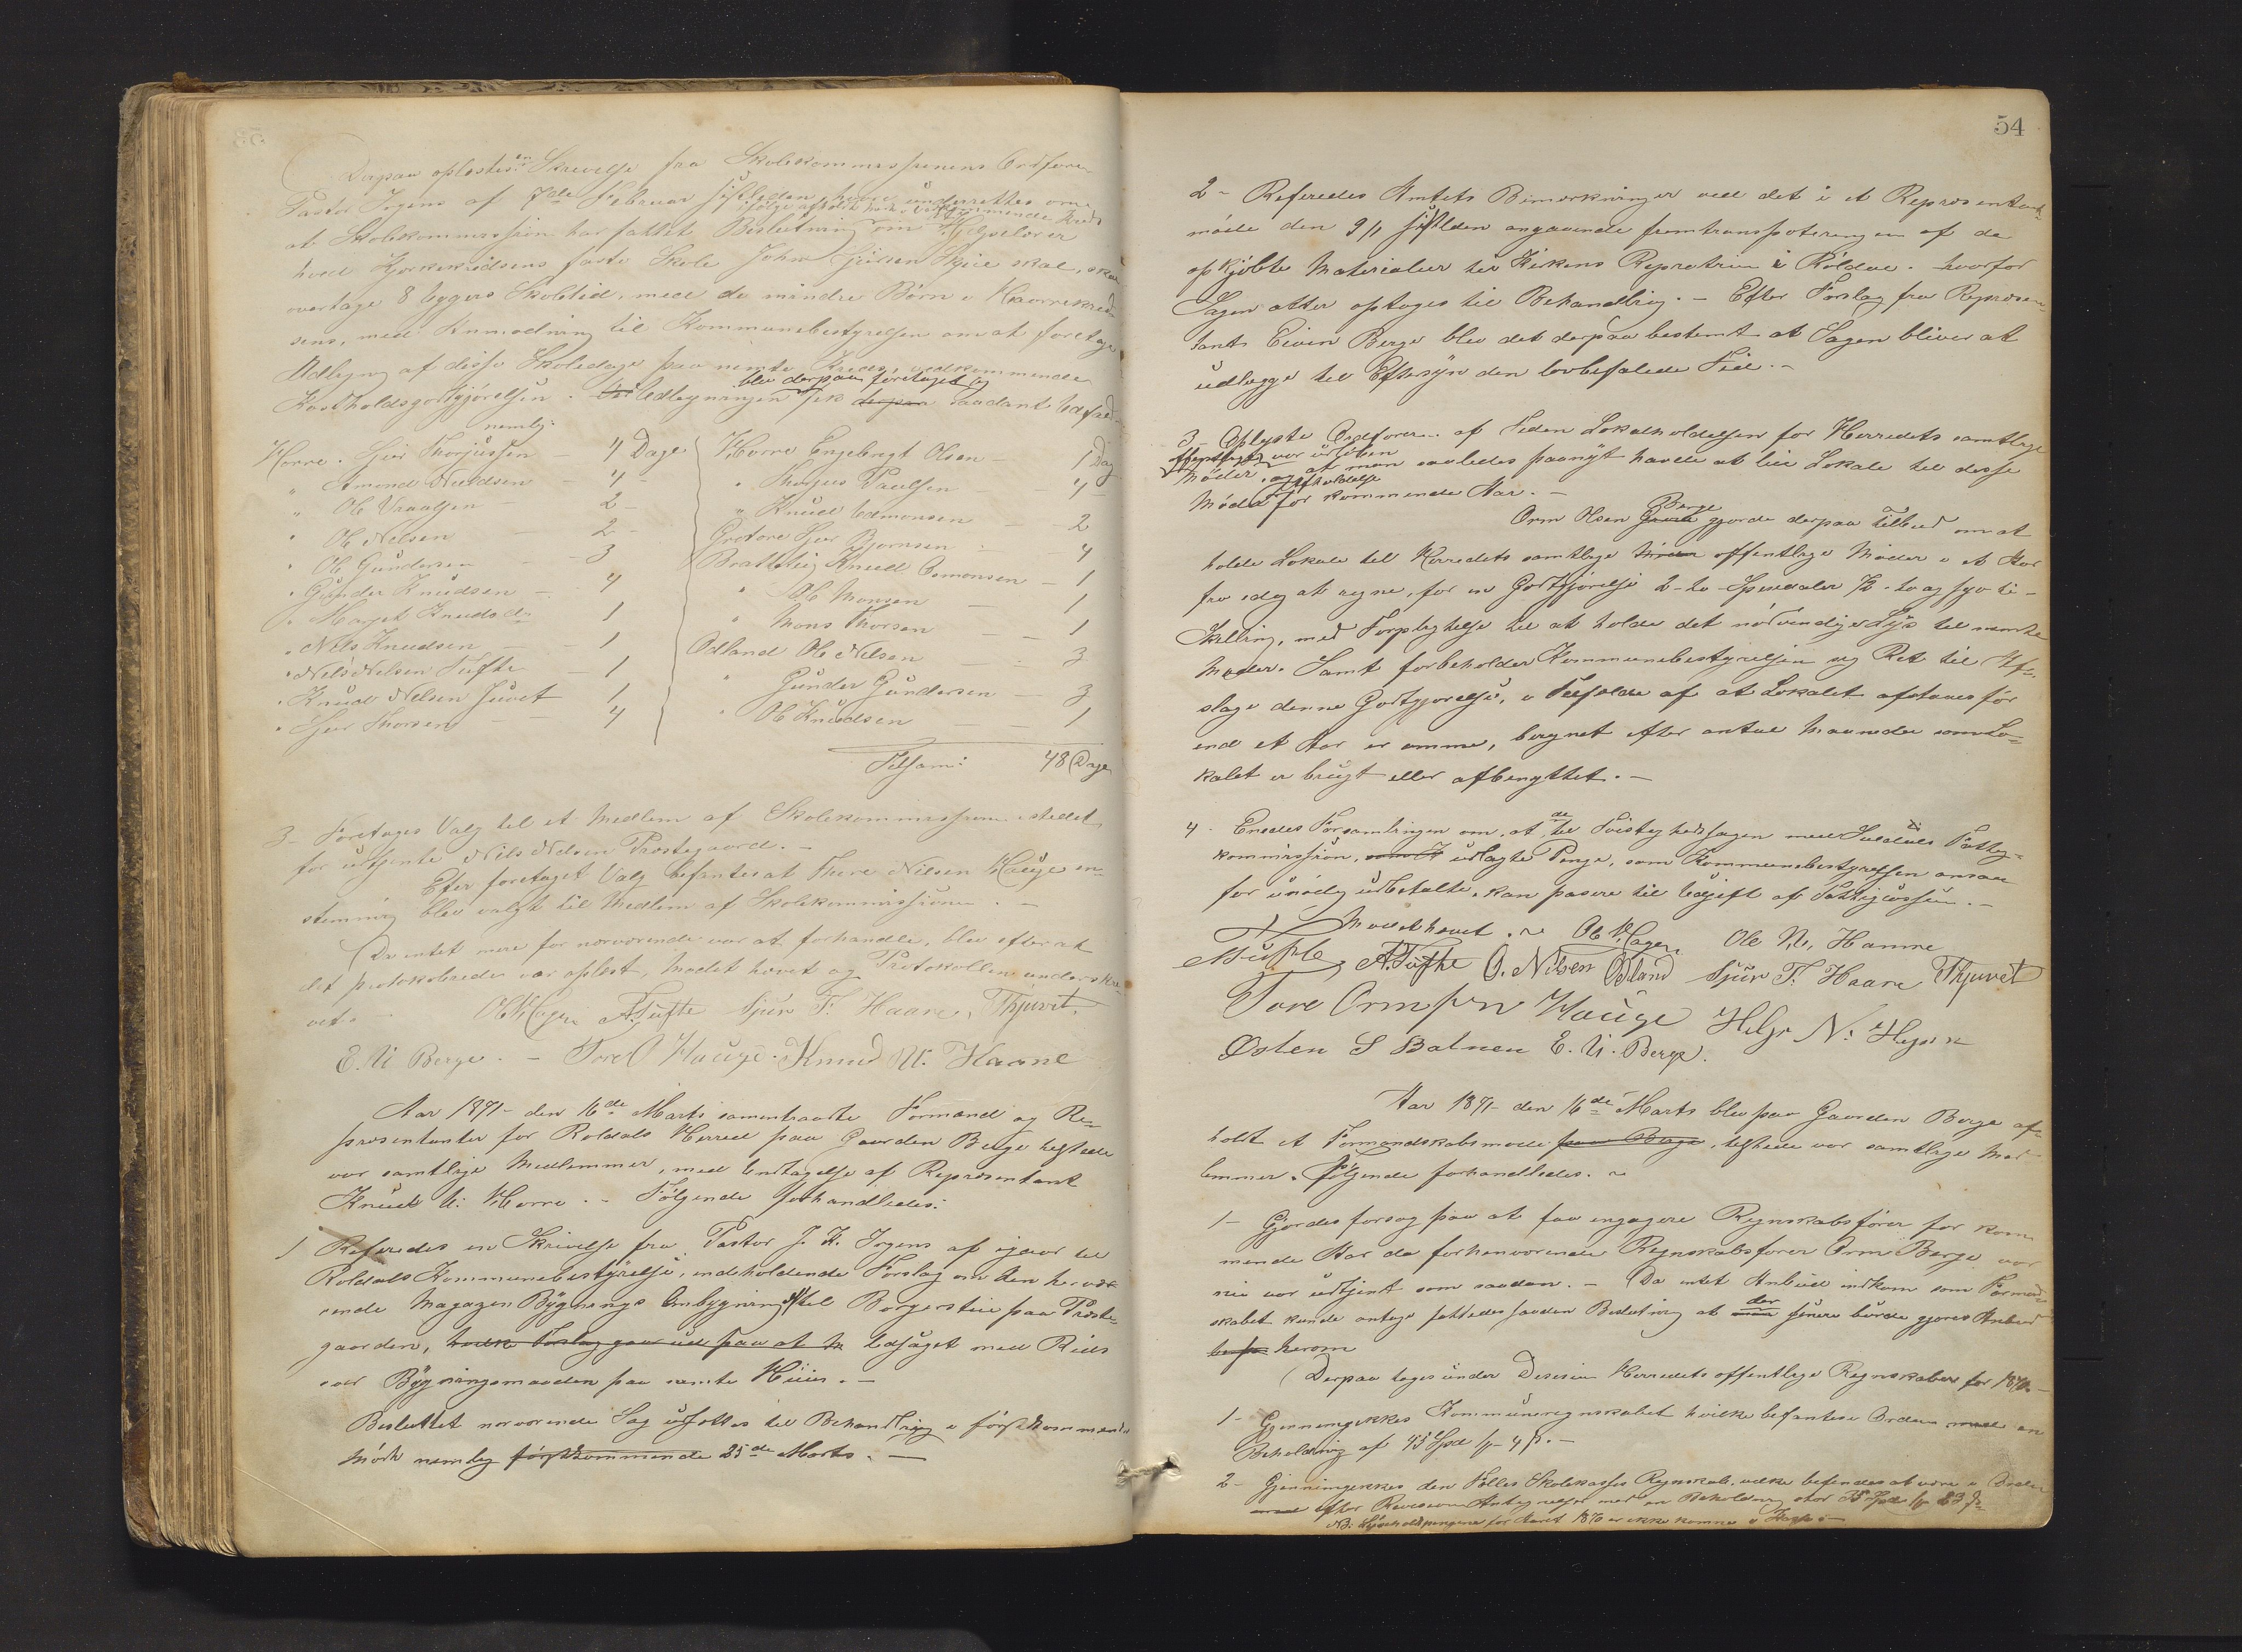 Derpaa oplæstes en Skrivelse fra Skolekommissionens Ordfører
Pastor Irgens af 7de Februar sistleden, hvori underrettes om
ifølge afholdt Møde i vedkommende Kreds
at Skolekommission har fattet Beslutning om Hjelpelærer
hved Gjerkekredsens faste Skole John Sjursen Skjue skal,
overtage 8 Uggers Skoletid, med de mindre Børn i Haarrekred-
sens, med Anmodning til Kommunebestyrelsen om at foretage
Udligning af disse Skoledage paa nemte Kreds, vedkommende
Kostholdsgodtgjørelsen. Udligningen blev derpaa foretaget og fik saadant Udfald
nemlig:
Horre. Sjur Thorjussen - 4 Dage
" Amund Knudsen - 4 -
" Ole Vraalsen 2 -
" Ole Nelsen - 2 -
" Ole Gundersen - 3
" Gunder Knudsen - 4
" Marget Knudsd. 1
" Nels Knudsen - 1
" Nels Nelsen Tufte - 1
" Knud Nelsen Juvet 1
" Sjur Thorsen - 4
Horre Engebregt Olsen - 1 Dag
" Thorjus Paulsen - 4 -
" Knud Edmonsen - 2
Grotore Sjur Bjørnsen - 4
Brattelie Knud Osmonsen - 1
" Ole Monsen - 1
" Mons Thorsen - 1
Odland Ole Nelsen - 3
" Gunder Gundersen - 3
" Ole Knudsen - 1
Tilsam: 48 Dage
3- Foretages Valg til et Medlem af Skolekommissionen istedet
for udtjente Nils Nelsen Prestegaard. -
Efter foretaget Valg befantes at Thore Nilsen Hauge en-
stemmig blev valgt til Medlem af Skolekommissionen. -
Da intet mere for nærværende var at forhandle, blev efter at
det protokolerede var oplæst, Mødet hævet og Protokollen underskre-
vet. - O. H. Hagen A. Tufte Sjur T. Haare, T. Hjuvet,
E. N. Berge. - Tore O Hauge. Knud N. Haare
Aar 1871- den 16de Marts sammentraadte Formænd og Re-
præsentanter for Røldals Herred paa Gaarden Berge tilstede
var samtlige Medlemmer, med Undtagelse af Representant
Knud N. Horre. - Følgende forhandledes:
1 Referedes en Skrivelse fra Pastor J. K. Irgens af igaar til
Roldals Kommunebestyrelse, indeholdende Forslag om den herværende
rende Magazin Bygnings Ombygning til Borgerstue paa Præste-
gaarden, hvilke Forslag gaar ud paa at Ledsaget med Rids
over Bygningsmaaden paa nemte Huus. -
Besluttet nerværende Sag udsættes til Behandling i førstkommende
Møde nemlig førstkommende 25de Marts. -
54
2- Referedes Amtets Bimerkninger ved det i et Representant-
møde den 9/1 sistleden angaaende fremtransporteringen af de
opkjøbte Materialier til Kirkens Repratrion i Røldal. hvorfor
Sagen atter optages til Behandling. - Efter Forslag fra Repræsen-
tant Eivin Berge blev det derpaa bestemt at Sagen bliver at
udlægge til Eftersyn den lovbefalede Tid. -
3- Oplyste Ordfører af Tiden Lokalholdelsen for Herredets samtlige
offentlige Møder var udløben
og at man saaledes paanyt havde at leie Lokale til disse
Møders Afholdelse for kommende Aar. -
Orm Olsen Berge gjorde derpaa Tilbud om at
holde Lokale til Herredets samtlige offentlige Møder i et Aar
fra idag at regne, for en Godtgjørelse 2- to Spesidaler 72- to og syvti -
Skilling, med Forpligtelse til at holde det nødvendige Lys til mørke
Møder. Samt forbeholder Kommunebestyrelsen sig Ret til Af-
slage denne Godtgjørelse, i Tilfælde af at Lokalet afstaaes før
end et Aar er omme, beregnet efter antal Maaneder som Lo-
kalet er brugt eller afbenyttet. -
4- Enedes Forsamlingen om, at de til Tvistighedssagen med Suldals Fattig-
kommission, udlagte Penge, som Kommunebestyrelsen ansaa
for unødig udbetalte, kan pasere til Udgift af Fattigcassen. -
Mødet hævet. - O. H. Hagen Ole N. Hamre
A. Tufte O. Nilsen Ødland Sjur T. Haare T. Hjuvet
Tore Ormsen Hauge Helge N. Hegen
Østen S Botnen E. N. Berge.
Aar 1871- den 16de Marts blev paa Gaarden Berge af-
holdt et Formandskabsmøde paa Berge, tilstede var samtlige Med-
lemmer. Følgende forhandledes. -
1- Gjordes forsøg paa at faa engagere Regnskabsfører for kom
mende Aar da forhenværende Regnskabsfører Orm Berge var
nu var udtjent som saadan. - Da intet Anbud indkom som Formand-
skabet kunde antage fattedes saaden Beslutning at der senere burde gjøres Anbud
herom
Derpaa toges under Desision Herredets offentlige Regnskaber for 1870 -
1- Gjennemgikkes Kommuneregnskabet hvilke befantes i Orden med en
Beholdning af 45 Spd - 4 ß. -
2- Gjennemgikkes den Felles Skolekasses Regnskab, vilke befindes at være i Orden
efter Revisions Antegnelser med en Beholdning stor 35 Spd 83 ß
NB: for Aaret 1870 er ikke komne i Kasse -